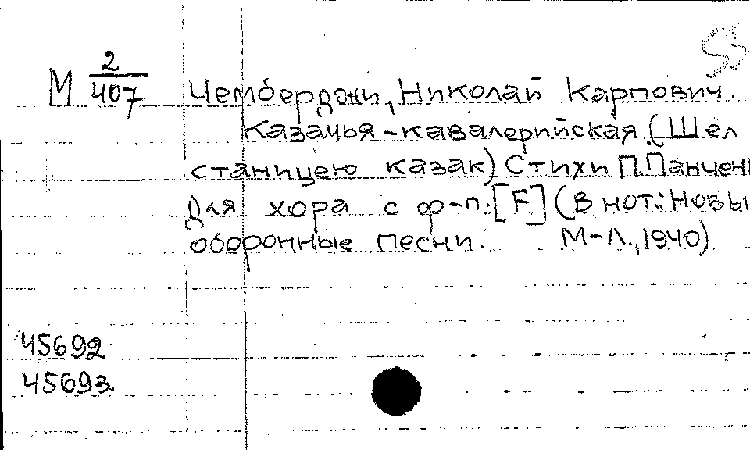 М 2/407 Чемберджи, Николай Карпович.
Казачья-кавалерийская. (Шёл
станицею казак) Стихи П.Панчен
Для хора с ф-п. [F] (В нот.: Новы
оборонные песни. М-Л., 1940)
45692
45693